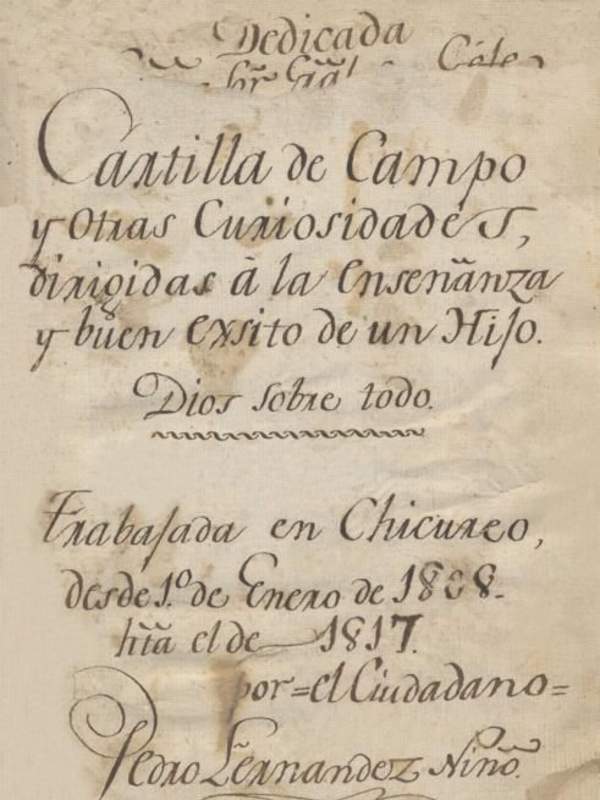 Dedicada
Cartilla de Campo
y otras Curiosidades,
dirigidas à la enseñanza
y buen exsito de un Hijo.
Dios sobre todo.
Trabajada en Chicureo,
desde 1.º de Enero de 1808.
htã el de 1817.
por=el Ciudadano=
Pedro Fernandez Niño.